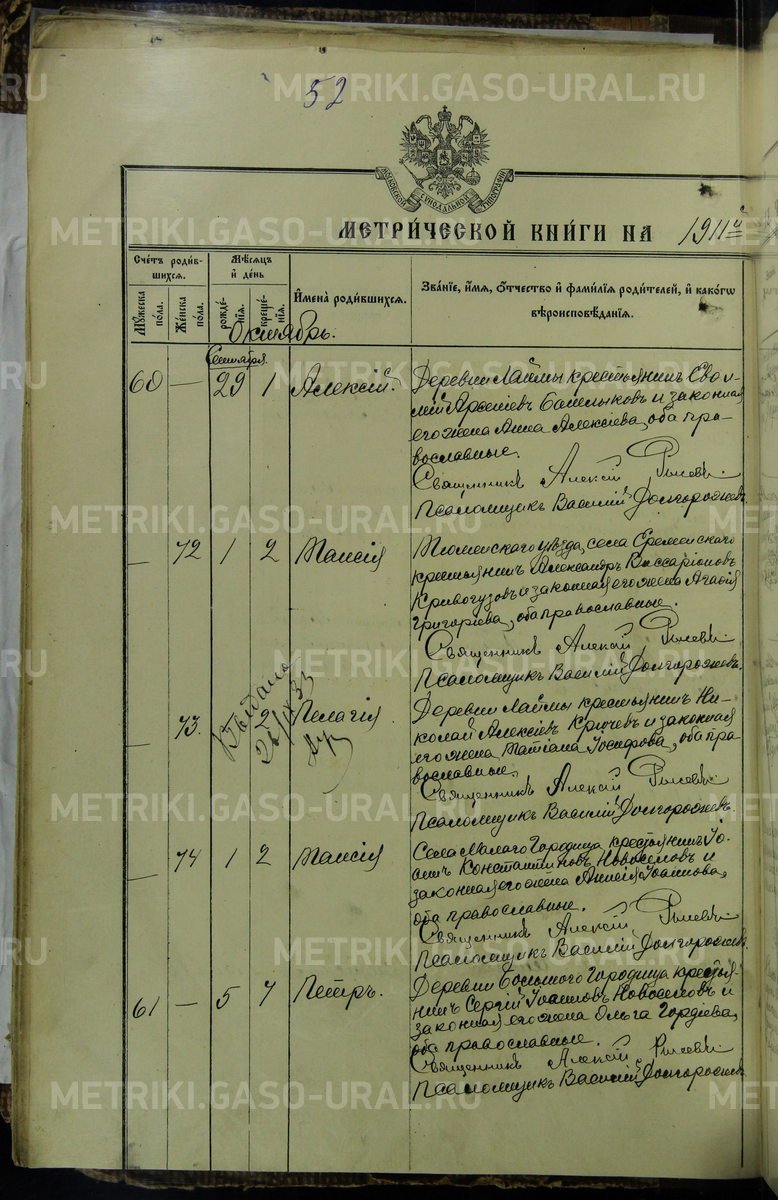 52
МОСКОВСКОЙ СѴНОДАЛЬНОЙ ТИПОГРАФІИ
МЕТРИ́ЧЕСКОЙ КНИ́ГИ НА 1911 й
Сче́тъ роди́в-
шихся.
Мꙋ́жеска по́ла.
Же́нска по́ла.
Мѣ́сяцъ
и҆ де́нь
рожде́нїѧ.
креще́нїѧ.
И҆мена̀ роди́вшихсѧ.
Зва́нїе, и҆́мѧ, ѻ҆́тчество и҆ фами́лїѧ роди́телей, и҆ како́гѡ
вѣроисповѣ́данїѧ.
Октябрь.
Сентября
60 — 29 1 Алексій.
Деревни Лаймы крестьянинъ
Арсеніевъ и законная
его жена Анна Алексіева, оба пра-
вославные.
Священникъ Алексій
Псаломщикъ Василій
— 72 1 2 Таисія
Тюменскаго уѣзда, села
крестьянинъ Александръ Виссаріоновъ
Кривогузовъ и законная его жена Агафія
Григоріева, оба православные.
Священникъ Алексій
Псаломщикъ Василій
— 73. 2 Пелагія
Выдано
33
Деревни Лаймы крестьянинъ Ни-
колай Алексіевъ и законная
его жена Татіана Іосифова, оба пра-
вославные.
Священникъ Алексій
Псаломщикъ Василій
— 74 1 2 Таисія
Села Малаго Городища крестьянинъ Іо-
аннъ Константиновъ Новоселовъ и
законная его жена Іоаннова,
оба православные.
Священникъ Алексій
Псаломщикъ Василій
61 — 5 7 Петръ.
Деревни Большого Городища крестья-
нинъ Сергій Іоанновъ Новоселовъ и
законная его жена Ольга Гордіева,
оба православные.
Священникъ Алексій
Псаломщикъ Василій
METRIKI.GASO-URAL.RU